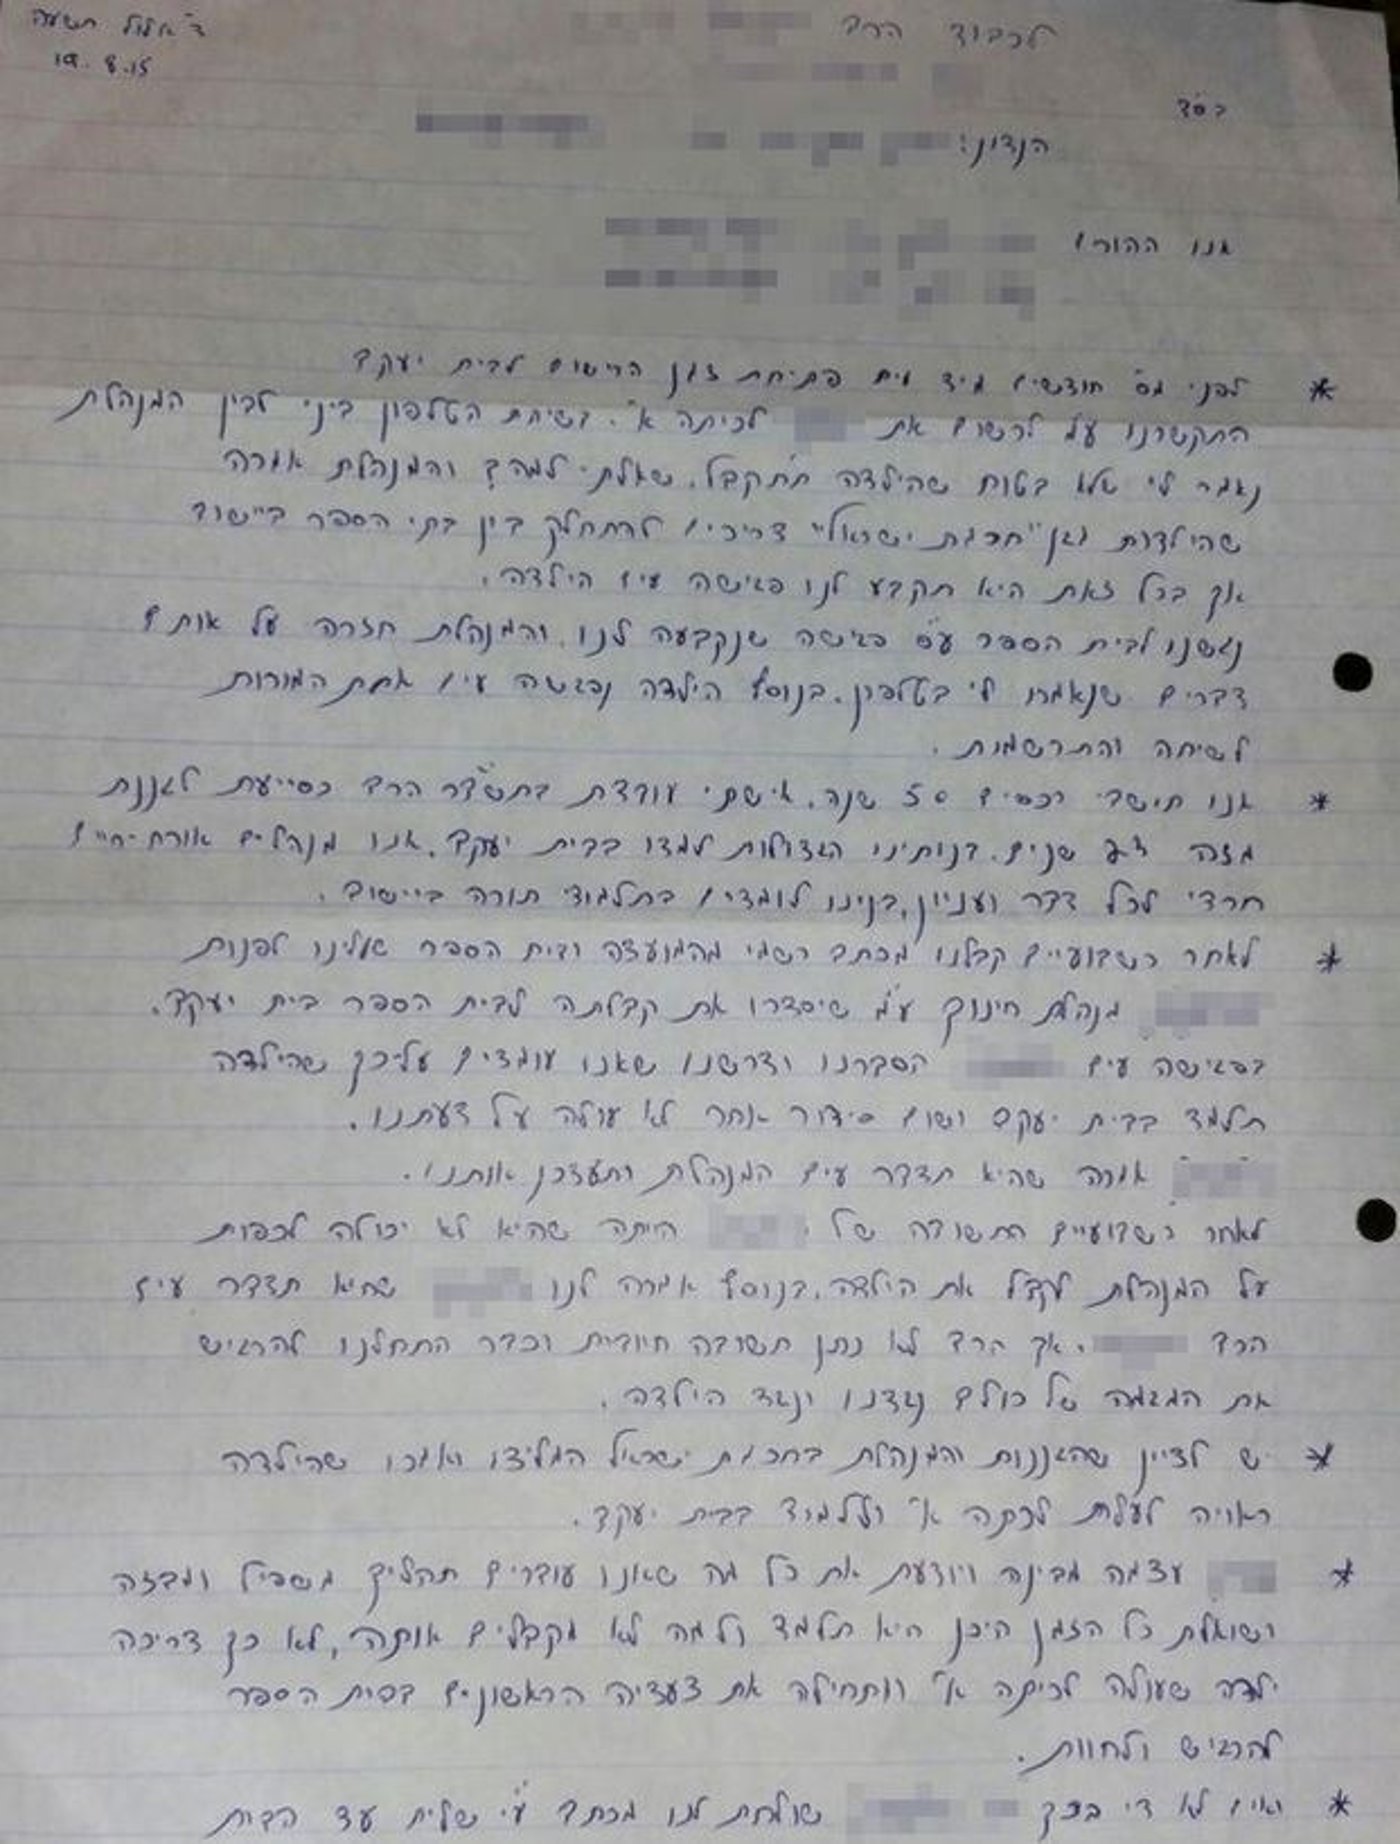 לכבוד הרב
ד' אלול תשעה
19.8.15
בס"ד
הנדון:
אנו ההורים
* לפני מס' חודשים מיד עם פתיחת זמן הרישום לבית יעקב
התקשרנו ע"מ לרשום את לכיתה א'. בשיחת הטלפון ביני לבין המנהלת
נאמר לי שלא בטוח שהילדה תתקבל. שאלתי למה? והמנהלת אמרה
שהילדות מגן "חכמת ישראל" צריכים להתחלק בין בתי הספר ביישוב
אך בכל זאת היא תקבע לנו פגישה עים הילדה.
ניגשנו לבית הספר ע"ס פגישה שנקבעה לנו. והמנהלת חזרה על אותם
דברים שנאמרו לי בטלפון. בנוסף הילדה נפגשה עים אחת המורות
לשיחה והתרשמות.
* אנו תושבי רכסים 30 שנה. אישתי עובדת בתש"בר הרב כסייעת לגננת
מזה שנים. בנותינו הגדולות למדו בבית יעקב. אנו מנהלים אורח-חיים
חרדי לכל דבר ועניין, בנינו לומדים בתלמוד תורה ביישוב.
* לאחר כשבועיים קבלנו מכתב רשמי מהמועצה ובית הספר שעלינו לפנות
מנהלת חינוך ע"מ שיסדרו את קבלתה לבית הספר בית יעקב.
בפגישה עים הסברנו ודרשנו שאנו עומדים על כך שהילדה
תלמד בבית יעקב ושום סידור אחר לא עולה על דעתנו.
אמרה שהיא תדבר עים המנהלת ותעדכן אותנו.
לאחר כשבועיים התשובה של היתה שהיא לא יכולה לכפות
על המנהלת לקבל את הילדה. בנוסף אמרה לנו שהיא תדבר עים
הרב . אך הרב לא נתן תשובה חיובית וכבר התחלנו להרגיש
את המגמה של כולם נגדנו ונגד הילדה.
* יש לציין שהגננות והמנהלת בחכמת ישראל המליצו ואמרו שהילדה
ראויה לעלות לכתה א' וללמוד בבית יעקב.
* עצמה מבינה ויודעת את כל מה שאנו עוברים תהליך משפיל ומבזה
ושואלת כל הזמן היכן היא תלמד ולמה לא מקבלים אותה, לא כך צריכה
ילדה שעולה לכיתה א' ומתחילה את צעדיה הראשונים בבית הספר
להרגיש ולחוות.
* ואים לא די בכך שולחת לנו מכתב ע"י שליח עד הבית